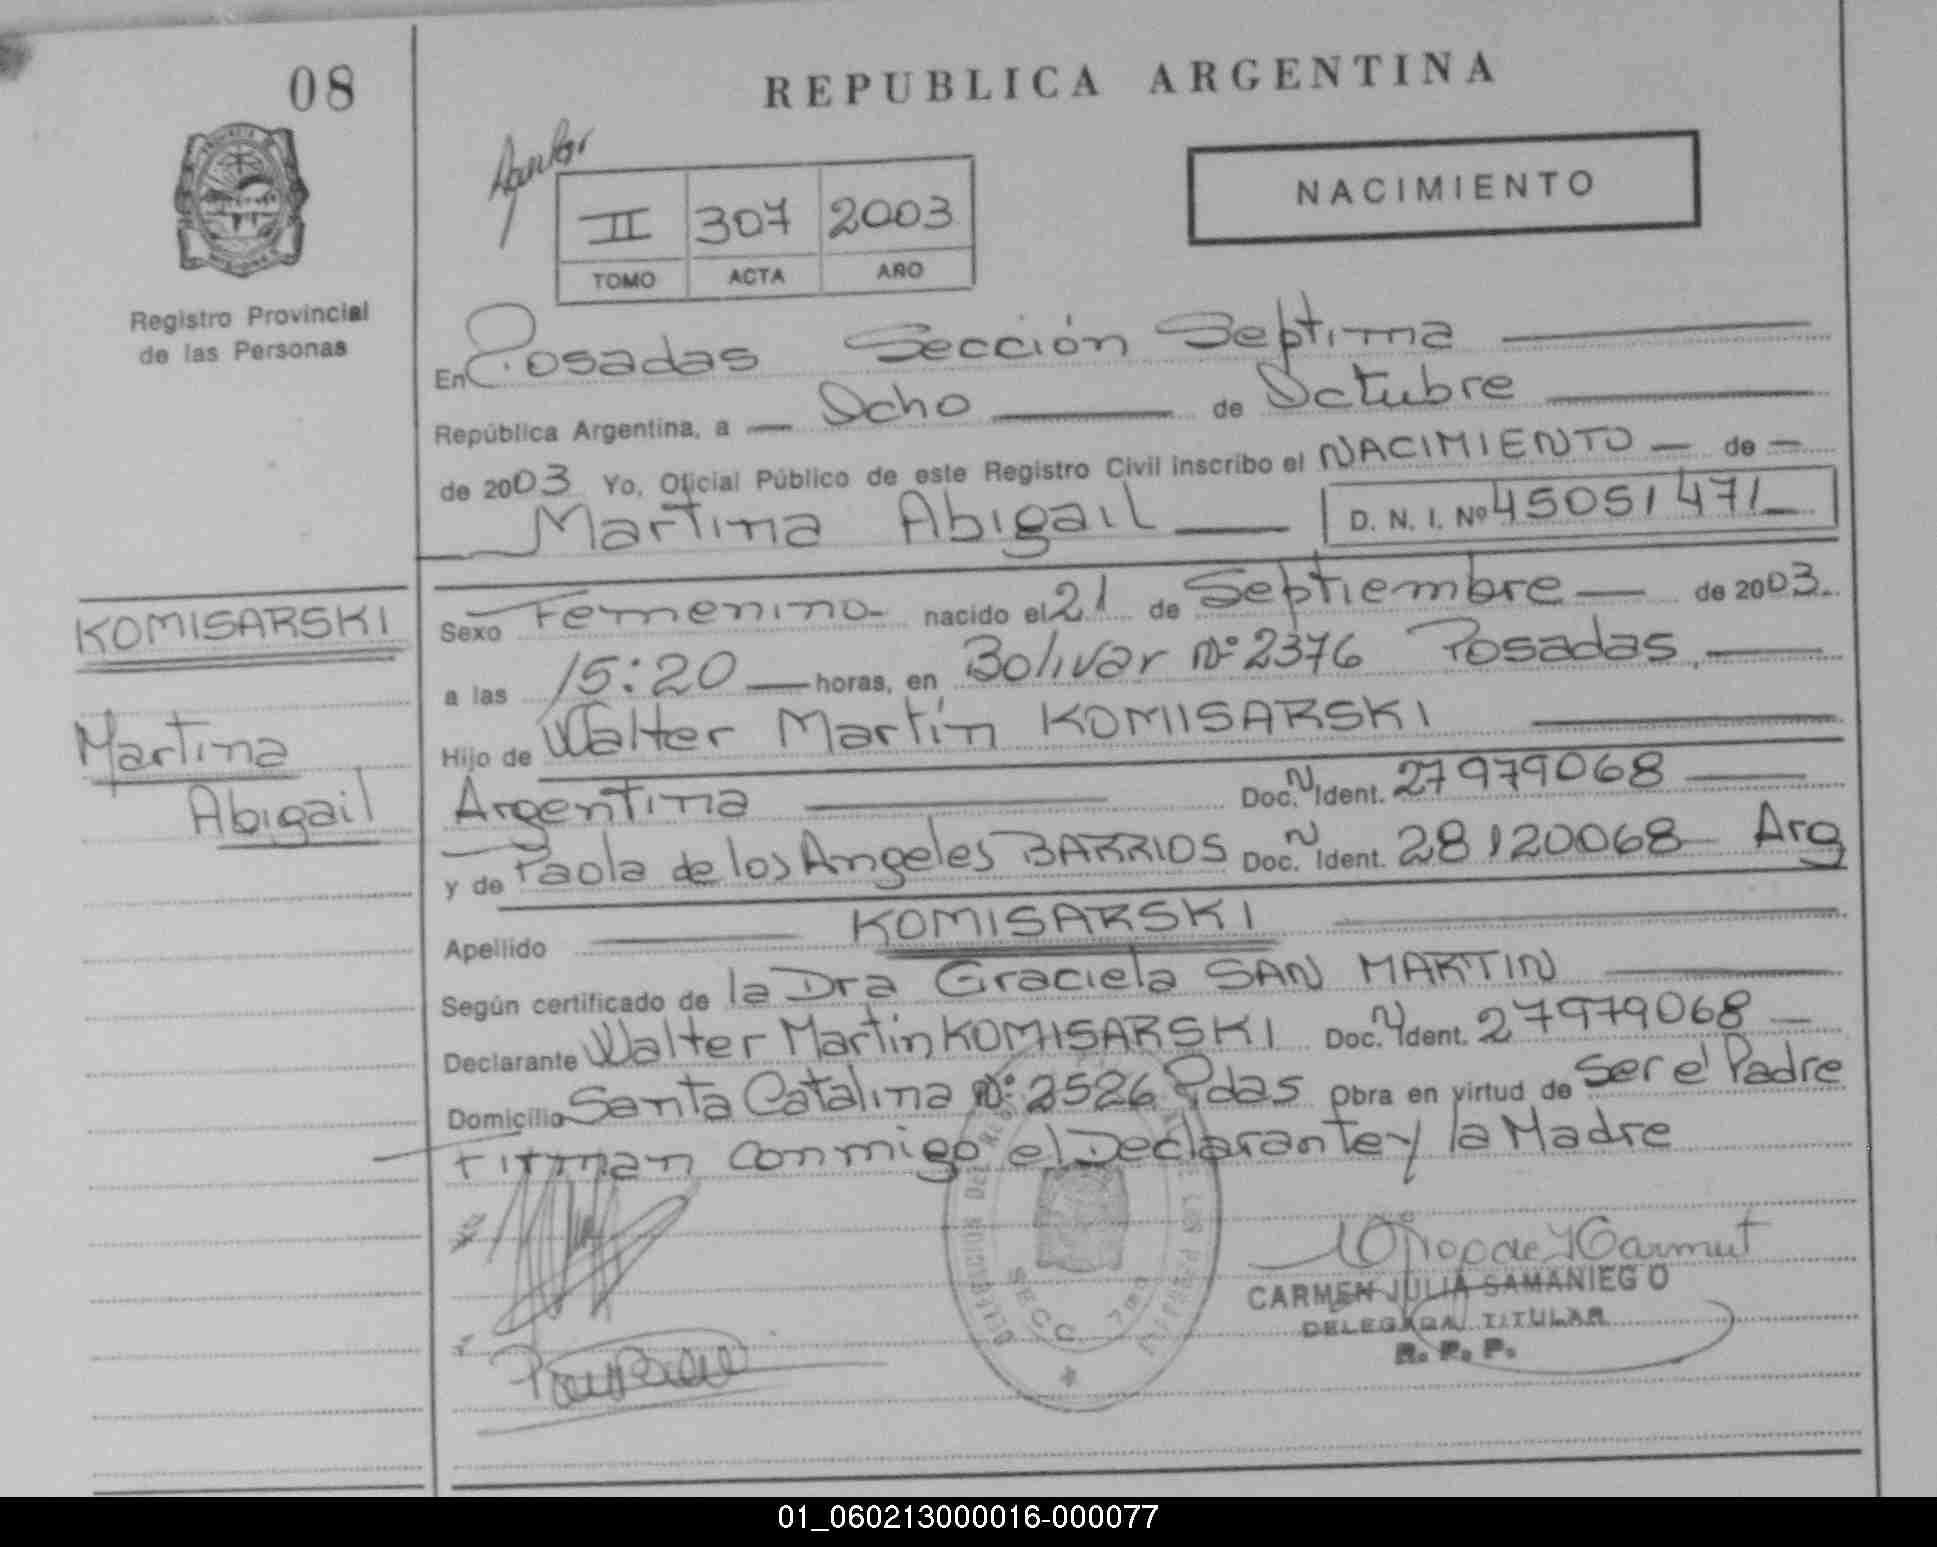 08
REPUBLICA ARGENTINA
NACIMIENTO
II 307 2003
TOMO ACTA AÑO
Registro Provincial
de las Personas
En Posadas Sección Septima
República Argentina, a Ocho de Octubre
de 2003 Yo, Oficial Público de este Registro Civil inscribo el NACIMIENTO de
Martina Abigail D. N. I. Nº 45051471
KOMISARSKI
Martina
Abigail
Sexo Femenino nacido el 21 de Septiembre de 2003
a las 15:20 horas, en Bolivar Nº 2376 Posadas.
Hijo de Walter Martín KOMISARSKI
Argentina Doc. N Ident. 27979068
y de Paola de los Angeles BARRIOS Doc. N Ident. 28120068 Arg
Apellido KOMISARSKI
Según certificado de la Dra Graciela SAN MARTIN
Declarante Walter Martin KOMISARSKI Doc. N Ident. 27979068
Domicilio Santa Catalina Nº 2526 Pdas Obra en virtud de ser el Padre
Firman conmigo el Declarante y la Madre
SECC 7ma
CARMEN JULIA SAMANIEGO
DELEGADA TITULAR
R. P. P.
01_060213000016-000077